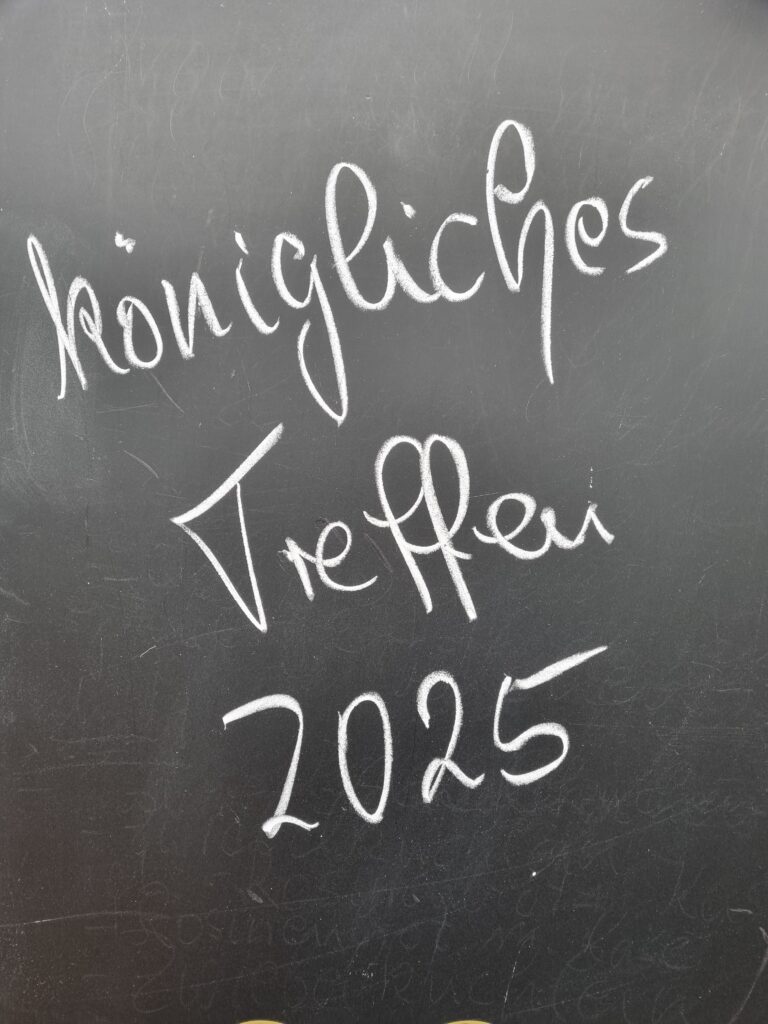 königliches
Treffen
2025